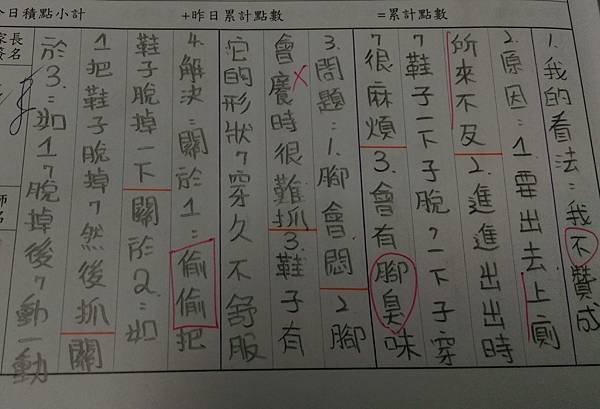 今日積點小計 +昨日累計點數 =累計點數
1.我的看法：我不贊成
2.原因：1.要出去上廁
所來不及2.進進出出時
，鞋子一下子脫，一下子穿
，很麻煩3.會有腳臭味
3.問題：1.腳會悶2腳
會癢時很難抓3.鞋子有
它的形狀，穿久不舒服
4.解決：關於1：偷偷把
鞋子脫掉一下關於2：如
1把鞋子脫掉，然後抓關
於3.：如1，脫掉後，動一動
家長簽名
師名